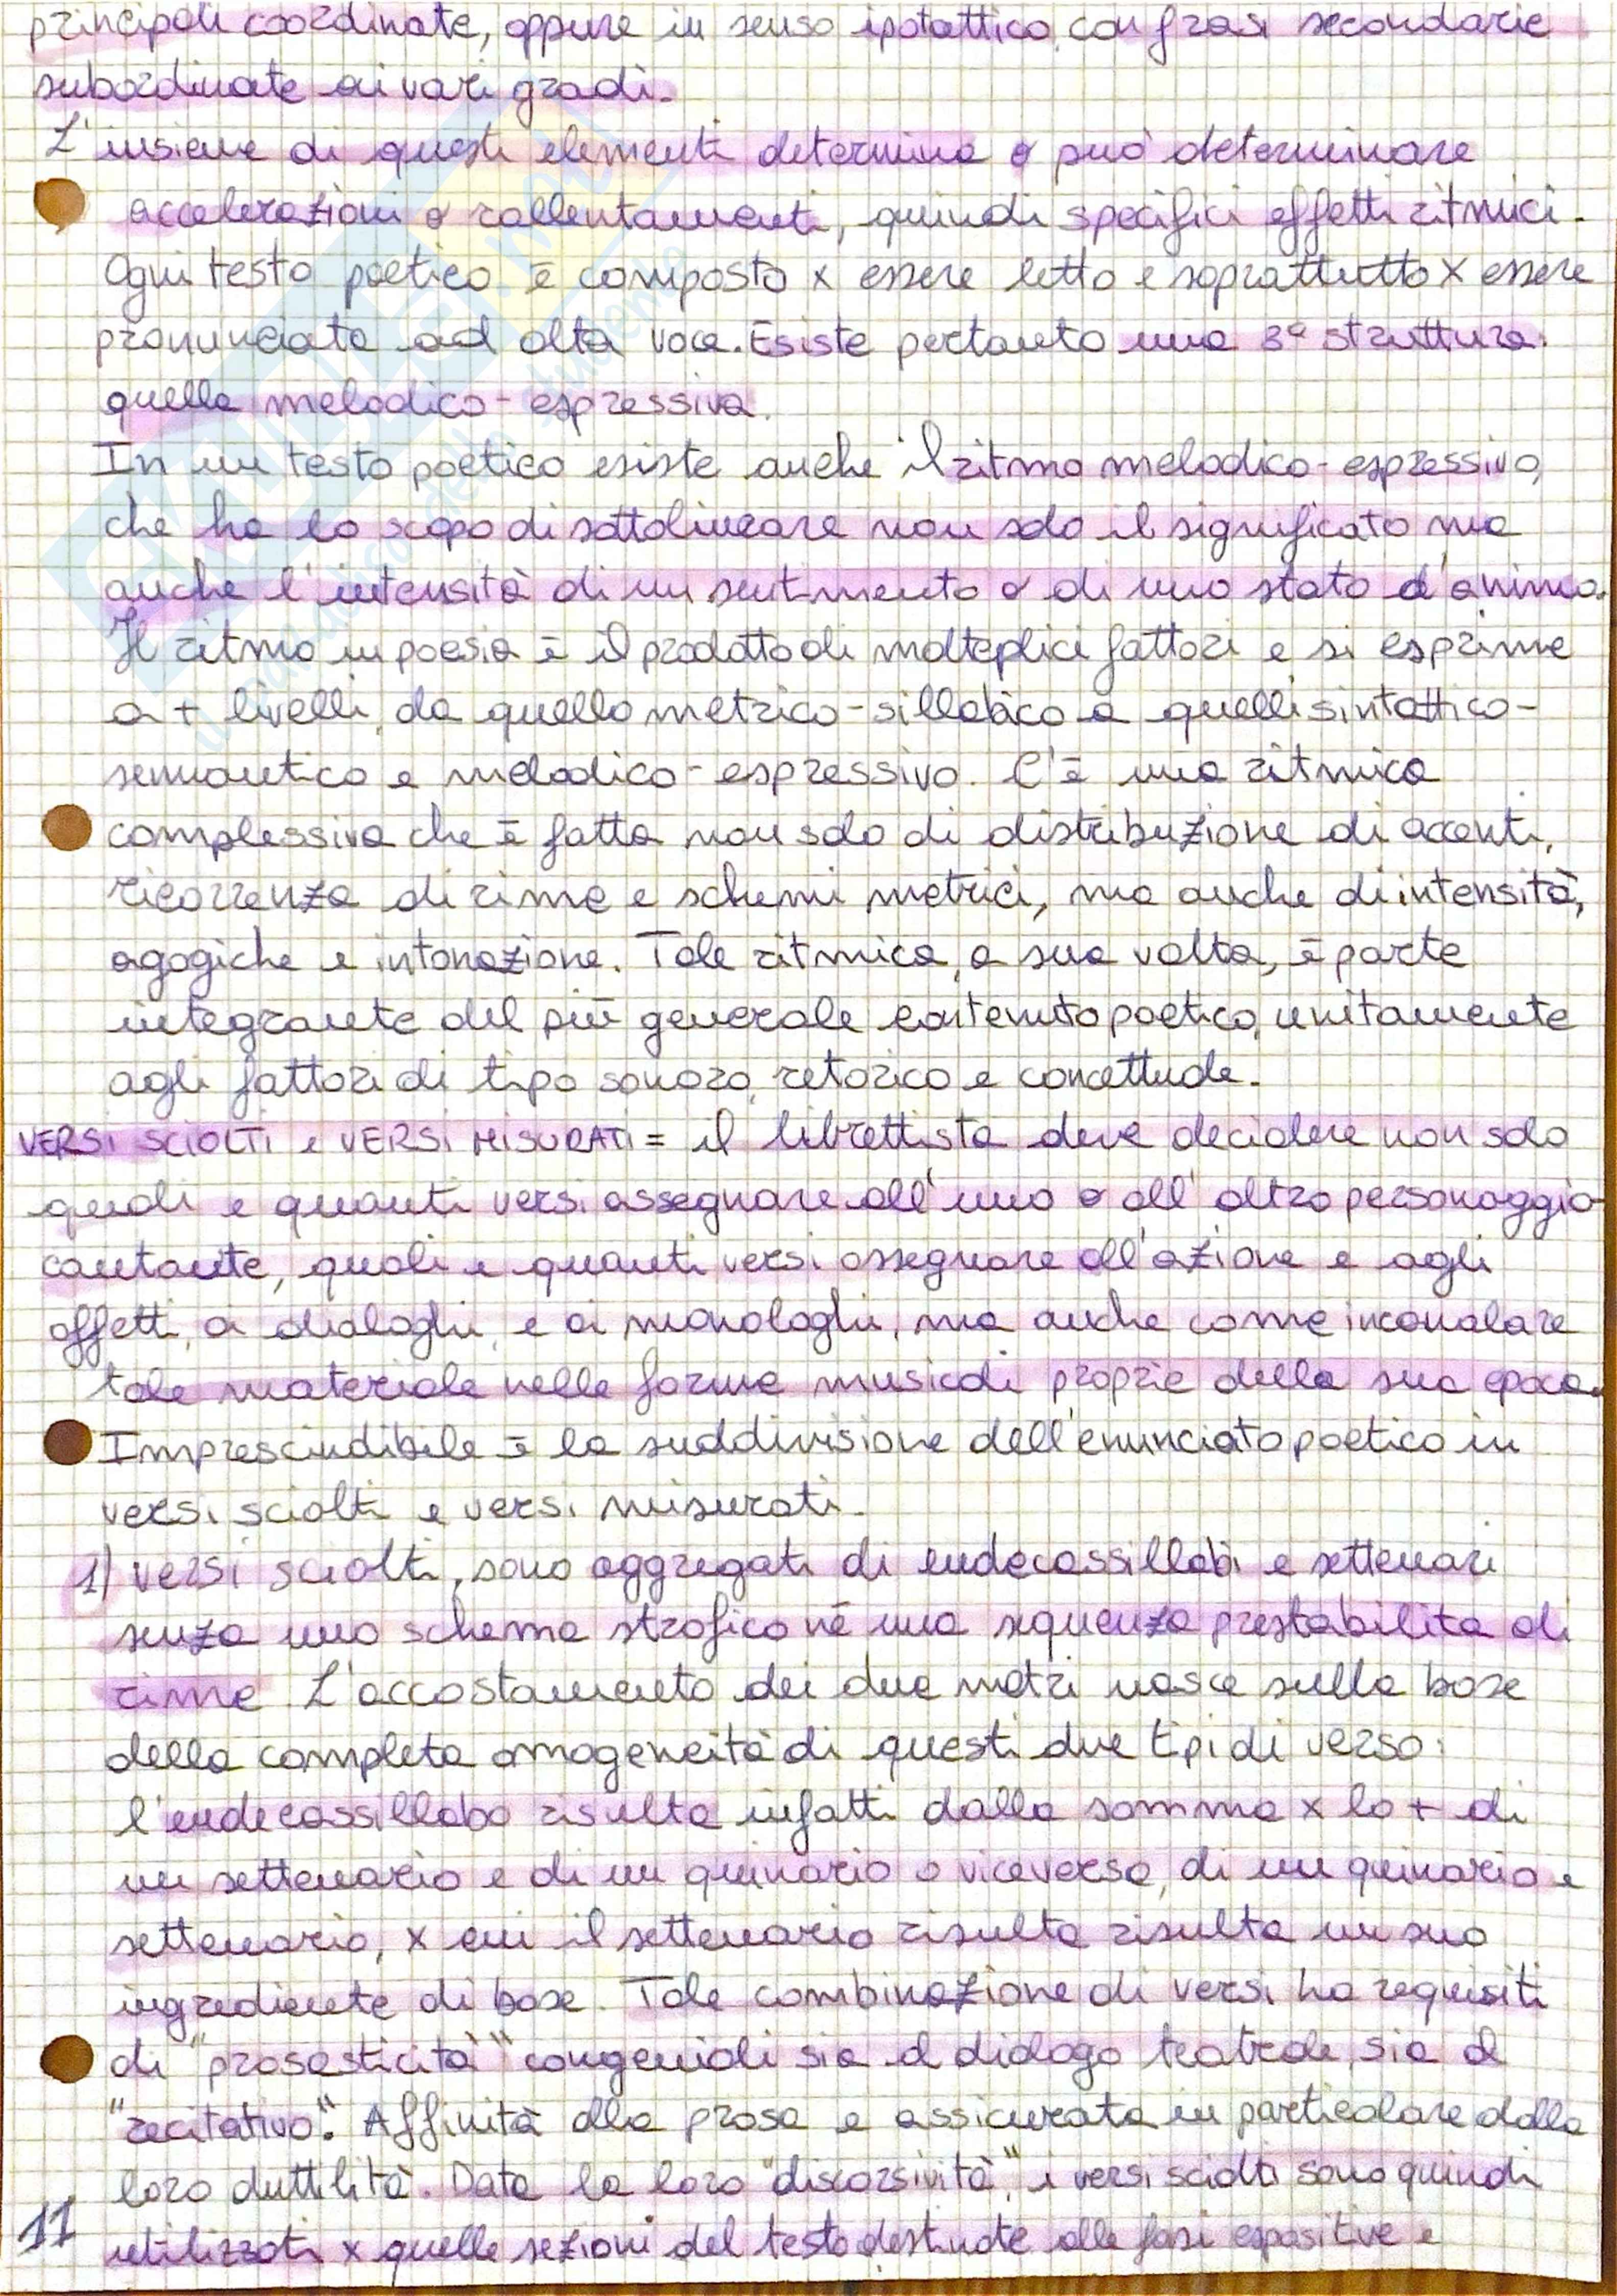 principali coordinate, oppure in senso ipotattico, con frasi secondarie
subordinate ai vari gradi.
L'insieme di questi elementi determina o può determinare
accelerazioni o rallentamenti, quindi specifici effetti ritmici.
Ogni testo poetico è composto x essere letto e soprattutto x essere
pronunciato ad alta voce. Esiste pertanto una 3ª struttura:
quella melodico-espressiva.
In un testo poetico esiste anche il ritmo melodico-espressivo,
che ha lo scopo di sottolineare non solo il significato ma
anche l'intensità di un sentimento o di uno stato d'animo.
Il ritmo in poesia è il prodotto di molteplici fattori e si esprime
a + livelli, da quello metrico-sillabico a quelli sintattico-
semantico e melodico-espressivo. C'è una ritmica
complessiva che è fatta non solo di distribuzione di accenti,
ricorrenza di rime e schemi metrici, ma anche di intensità,
agogiche e intonazione. Tale ritmica, a sua volta, è parte
integrante del più generale contenuto poetico, unitamente
agli fattori di tipo sonoro, retorico e concettuale.
VERSI SCIOLTI e VERSI MISURATI = il librettista deve decidere non solo
quali e quanti versi assegnare all'uno o all'altro personaggio-
cantante, quali e quanti versi assegnare all'azione e agli
affetti, ai dialoghi, e ai monologhi, ma anche come incanalare
tale materiale nelle forme musicali proprie della sua epoca.
Imprescindibile è la suddivisione dell'enunciato poetico in
versi sciolti e versi misurati.
1) versi sciolti, sono aggregati di endecassillabi e settenari
senza uno schema strofico né una sequenza prestabilita di
rime. L'accostamento dei due metri nasce sulla base
della completa omogeneità di questi due tipi di verso:
l'endecassillabo risulta infatti dalla somma x lo + di
un settenario e di un quinario o viceversa, di un quinario e
settenario, x cui il settenario risulta risulta un suo
ingrediente di base. Tale combinazione di versi ha requisiti
di "prosasticità" congeniali sia al dialogo teatrale, sia al
"recitativo". Affinità alla prosa e assicurata in particolare dalla
loro duttilità. Data la loro "discorsività", i versi sciolti sono quindi
utilizzati x quelle sezioni del testo destinate alle fasi espositive e
11